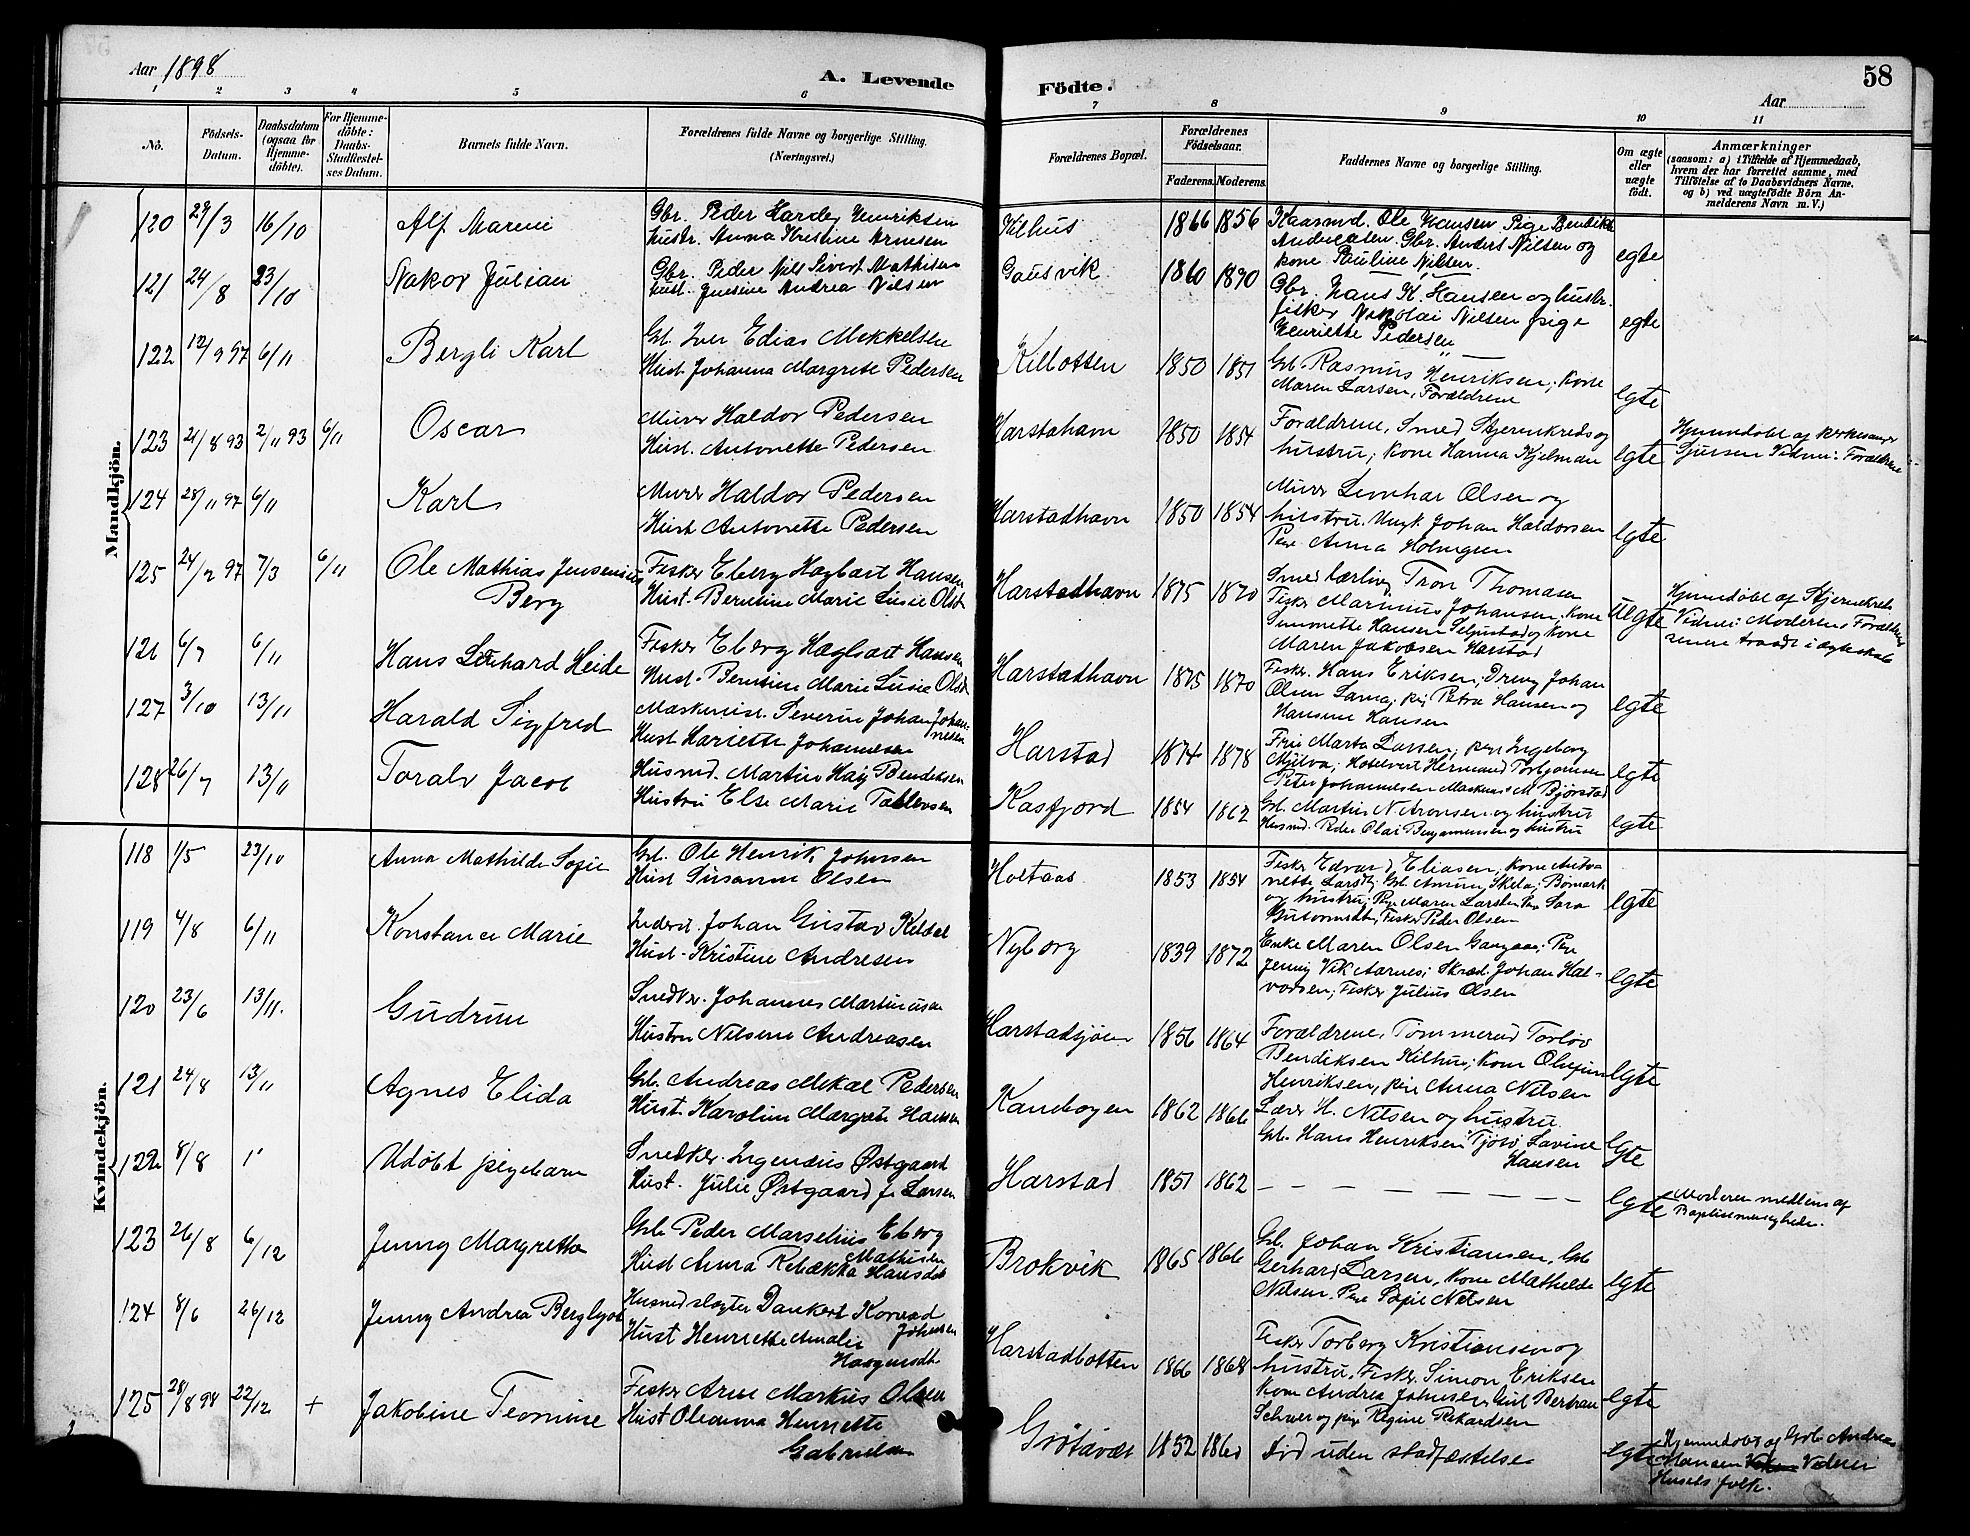 Aar 1898
A. Levende Födte.
Aar
58
1 2 3 4 5 6 7 8 9 10 11
No.
Födsels-Datum.
Daabsdatum (ogsaa for Hjemme-döbte).
For Hjemme-döbte: Daabs-Stadfæstel-ses Datum.
Barnets fulde Navn.
Forældrenes fulde Navne og borgerlige Stilling. (Næringsvei.)
Forældrenes Bopæl.
Forældrenes Födselsaar.
Faderens. Moderens.
Faddernes Navne og borgerlige Stilling.
Om ægte eller uægte födt.
Anmærkninger
(saasom: a) i Tilfælde af Hjemmedaab, hvem der har forrettet samme, med Tilföielse af to Daabsvidners Navne, og b) ved uægtefödte Börn Anmelderens Navn m. V.)
Mandkjön.
120 29/3 16/10 Alf Mareni
Gbr. Peder Hardey Henriksen
hustr. Anna Kristine Arnesen
Kilhus 1866 1856
Kaarmd. Ole Hansen. Pige Bendikte
Gbr. Anders Nilsen og
kone Pauline Nilsen.
egte
121 24/8 23/10 Nakor Julian
Gbr. Peder Nils Sivert Mathisen
hust. Jensine Andrea Nilsen
Gausvik 1860 1890
Gbr. Hans K. Hansen og hustr.
fisker Nikolai Nilsen pige
Henriette Pedersen
egte
122 12/9 97 6/11 Bergli Karl
Gb. Iver Edias Mikkelsen
Hust. Johanna Margrete Pedersen
Kilbotten 1850 1851
Gb. Rasmus Henriksen; Kone
Maren Larsen, Forældrene
egte
123 21/8 93 2/11 93 6/11 Oscar
Murer Haldor Pedersen
Hust. Antonette Pedersen
Harstahavn 1850 1854
Forældrene, Smed Stjernkreds og
hustru; Kone Hanna Hjelman
egte
Hjemmdøbt af kirkesanger
Vidner: Forældrene
124 28/11 97 6/11 Karl
Murer Haldor Pedersen
Hust Antonette Pedersen
Harstadhavn 1850 1854
Murer Lenhar Olsen og
hustru. Ungk. Johan Haldorsen
Pige Anna Holmgren
egte
125 24/2 97 7/3 6/11 Ole Mathias Jensenius
Berg
Fisker Eberg Hagbart Hansen
Hust. Berntine Marie Lusie Olsdr
Harstadhavn 1875 1870
Smedlærling Tron Thomasen
Fisker Marinius Johansen, Kone
Simonette Hansen og Kone
Maren Jakobsen Harstad
uegte
Hjemmdøbt af Stjernekreds
Vidner: Moderen. Forældrene
senere traadt i ægteskab
126 6/7 6/11 Hans Lenhard Heide
Fisker Eberg Hagbart Hansen
Hust. Berntine Marie Lusie Olsdr
Harstadhavn 1875 1870
Fisker Hans Eriksen; Dreng Johan
Olsen; pig Petra Hansen og
Hansine Hansen
egte
127 3/10 13/11 Harald Sigfred
Maskinist. Severin Johan Johannesen
Hust Hariette Johannesen
Harstad 1874 1878
Frue Marta Larsen; pige Ingeborg
Mjelva; Hotelvert Hermand Torbjornsen
Peter Johannesen Maskinist M. Bjørstad
egte
128 26/7 13/11 Toralv Jacob
Husmd. Martin Høij Bendiksen
Hustru Else Marie Tollevsen
Kasfjord 1854 1862
Gb. Martin N. Aronsen og hustru
Husmd. Peder Olai Benjaminsen og hustru
egte
Kvindekjön.
118 1/5 23/10 Anna Mathilde Sofie
Gb. Ole Henrik Johnsen
Hust Susanne Olsen
Holtaas 1853 1854
Fisker Edvard Eliasen, Kone Anto-
nette Larsdt; Gb. Amun Skela; Bømark
og hustru; Pige Maren Larsen Sara
Guttormsdt, Fisker Peder Olsen
egte
119 4/8 6/11 Konstance Marie
Inderst. Johan Gustav Keldal
Hust. Kristine Andresen
Nyborg 1839 1872
Enke Maren Olsen Gangaas; Pige
Jenny Vik Aarnes; Skræd. Johan Hal-
vorsen; Fisker Julius Olsen
egte
120 23/6 13/11. Gudrun
Snedker. Johannes Martinusen
Hustru Nilsine Andreasen
Harstadsjøen 1856 1864
Forældrene, Tømmermd Torlov
Bendiksen Kilhus; Kone
Henriksen, pige Anna Nilsen
egte
121 24/8 13/11 Agnes Elida
Gb. Andreas Mikal Pedersen
Hust. Karoline Margrete Hansen
Kanebogen 1862 1866
Lærer H. Nilsen og hustru
Gb. Hans Henriksen Tjøtv Lavine
Hansen
egte
122 8/8 1" Udøbt pigebarn
Snedker. Ingenæus Østgaard
Hust. Julie Østgaard f. Larsen
Harstad 1851 1862
— — — — — — — —
egte
Moderen medlem af
Baptistmenigheden.
123 26/8 6/12 Jenny Margretha
Gb. Peder Marselius Eberg
Mathisen
Hust Anna Rebækka Hansdt
Brokvik 1865 1866
Gb. Johan Kristiansen, Gb
Gerhard Larsen, Kone Mathilde
Nilsen. Pige Sofie Nilsen
egte
124 8/6 26/12 Jenny Andrea Bergljot
Husmedslagter Dankert Konrad
Johnsen
Hust Henriette Amalie
Haagensdt.
Harstadbotten 1866 1868
Fisker Torberg Kristiansen og
hustru, Fisker Simon Eriksen
Kone Andrea Johnsen Gul Bertran
og pige Regine Rikardsen
egte
125 28/8 98 22/12 + Jakobine Teomine
Fisker Arne Markus Olsen
Hust Oleanna Henriette
Gabrielsen
Grøtavær 1852 1860
Død uden stadfæstelse
egte
Hjemmedøbt af Gb. Andreas
Hansen Vidner
Husets folk.